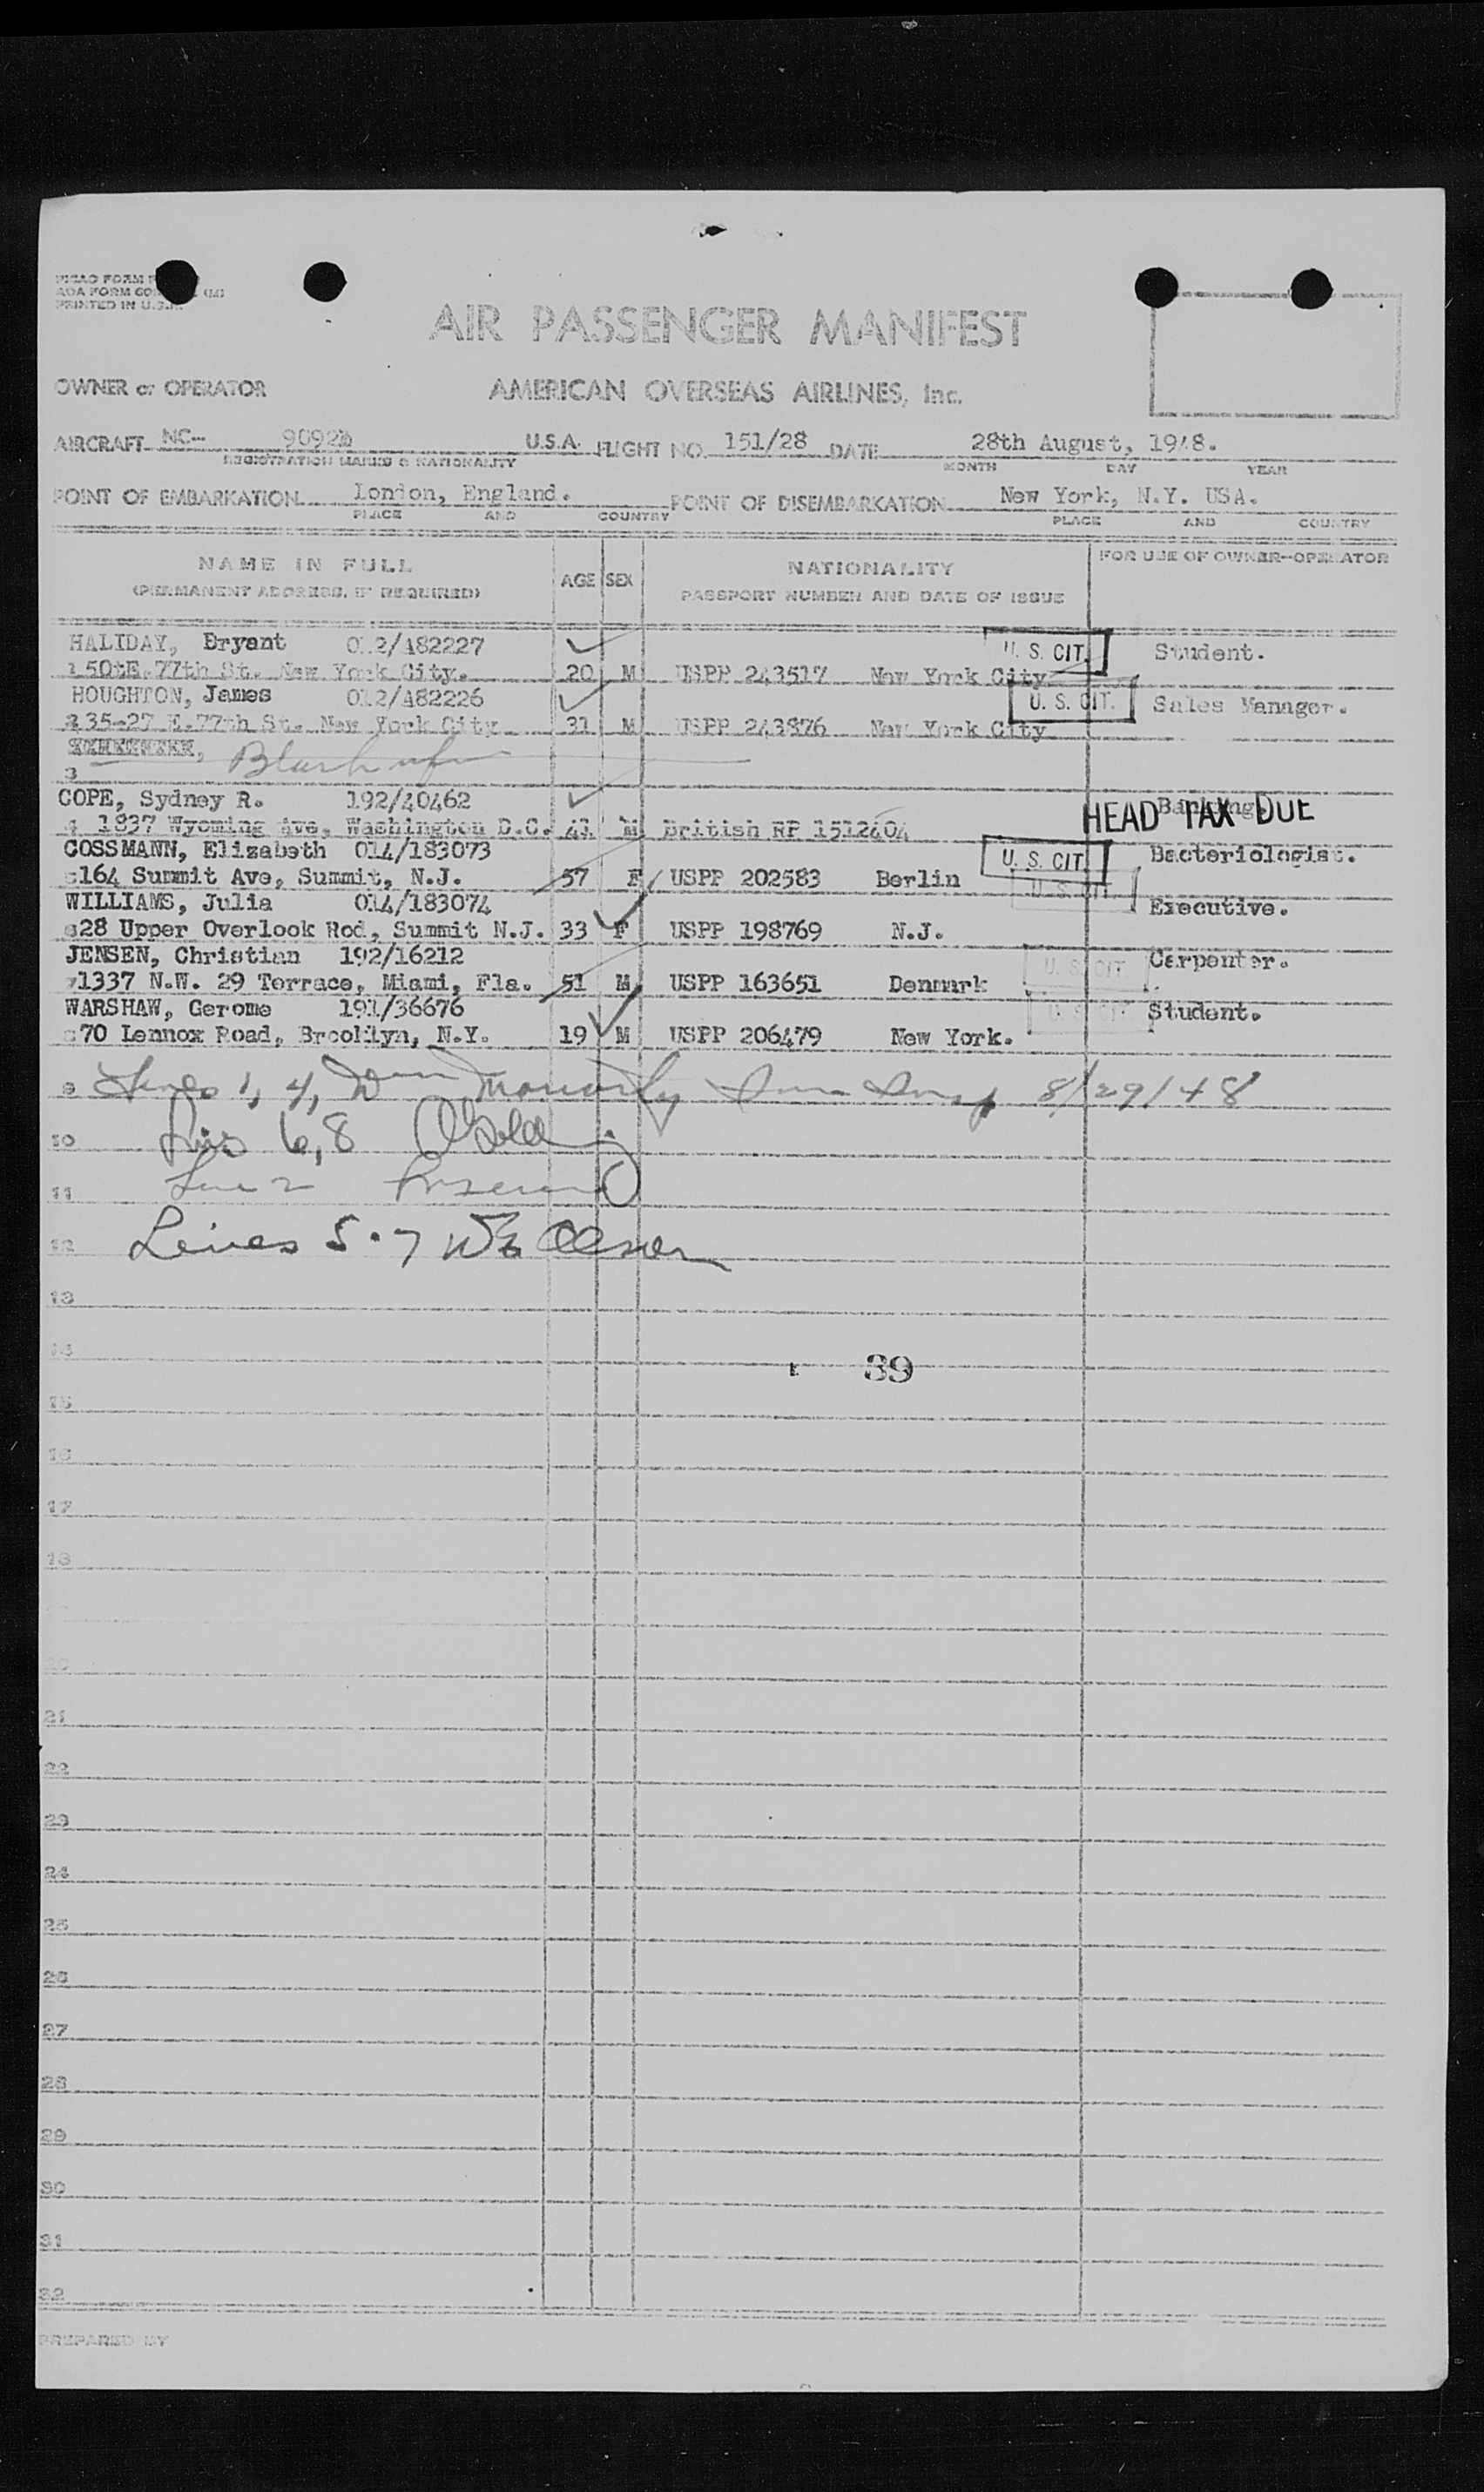 PRINTED IN U.S.A.
AIR PASSENGER MANIFEST
OWNER or OPERATOR AMERICAN OVERSEAS AIRLINES, Inc.
AIRCRAFT NC- U.S.A. FLIGHT NO. 151/28 DATE 28th August, 1948.
REGISTRATION MARKS & NATIONALITY MONTH DAY YEAR
POINT OF EMBARKATION London, England. POINT OF DISEMBARKATION New York, N.Y. USA.
PLACE AND COUNTRY PLACE AND COUNTRY
NAME IN FULL AGE SEX NATIONALITY FOR USE OF OWNER-OPERATOR
(PERMANENT ADDRESS, IF REQUIRED) PASSPORT NUMBER AND DATE OF ISSUE
HALIDAY, Bryant 012/482227 U. S. CIT. Student.
1 50tE.77th St. New York City. 20 M USPP 243517 New York City
HOUGHTON, James 012/482226 U. S. CIT. Sales Manager.
2 35-27 E.77th St. New York City 31 M USPP 243876 New York City
3
COPE, Sydney R. 192/40462 Banking HEAD TAX DUE
4 1837 Wyoming Ave, Washington D.C. 41 M British RP 1512404
COSSMANN, Elizabeth 014/183073 U. S. CIT. Bacteriologist.
5 164 Summit Ave, Summit, N.J. 57 F USPP 202583 Berlin
WILLIAMS, Julia 014/183074 U. S. CIT. Executive.
6 28 Upper Overlook Rod, Summit N.J. 33 F USPP 198769 N.J.
JENSEN, Christian 192/16212 U. S. CIT. Carpenter.
7 1337 N.W. 29 Terrace, Miami, Fla. 51 M USPP 163651 Denmark
WARSHAW, Gerome 191/36676 U. S. CIT. Student.
8 70 Lennox Road, Brooklyn, N.Y. 19 M USPP 206479 New York.
9 Lines 1, 4, Moriarty Imm Insp 8/29/48
10 6,8
11 Line 2
12 Lines 5.7
13
14 39
15
16
17
18
20
21
22
23
24
25
26
27
28
29
30
31
32
PREPARED BY